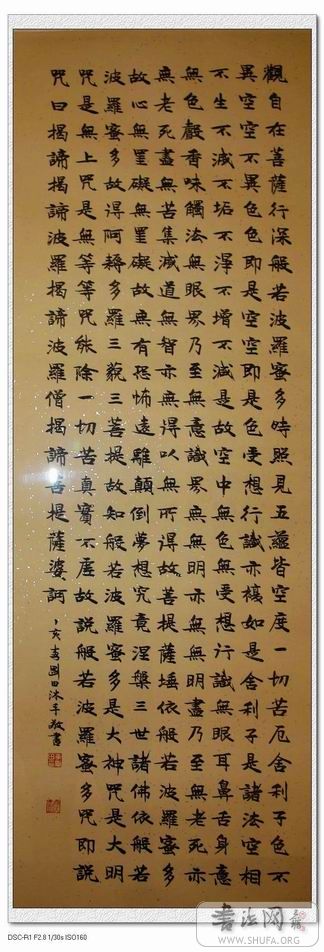 觀自在菩薩行深般若波羅蜜多時照見五蘊皆空度一切苦厄舍利子色不
異空空不異色色即是空空即是色受想行識亦復如是舍利子是諸法空相
不生不滅不垢不淨不增不減是故空中無色無受想行識無眼耳鼻舌身意
無色聲香味觸法無眼界乃至無意識界無無明亦無無明盡乃至無老死亦
無老死盡無苦集滅道無智亦無得以無所得故菩提薩埵依般若波羅蜜多
故心無罣礙無罣礙故無有恐怖遠離顛倒夢想究竟涅槃三世諸佛依般若
波羅蜜多故得阿耨多羅三藐三菩提故知般若波羅蜜多是大神咒是大明
咒是無上咒是無等等咒能除一切苦真實不虛故說般若波羅蜜多咒即説
咒曰揭諦揭諦波羅揭諦波羅僧揭諦菩提薩婆訶
亥春劉田沐手敬書
DSC-R1 F2.8 1/30s ISO160
书法网
WWW.SHUFA.ORG